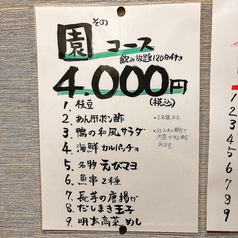 その
園 コース
飲み放題120分付き
4.000円
(税込)
1. 枝豆
2. あん肝ポン酢
3. 鴨の和風サラダ
4. 海鮮カルパッチョ
5. 名物えびマヨ
6. 魚串2種
7. 長芋の唐揚げ
8. だしまき玉子
9. 明太高菜めし
・2名様以上
1
2
3
4
5
6
7
8
9